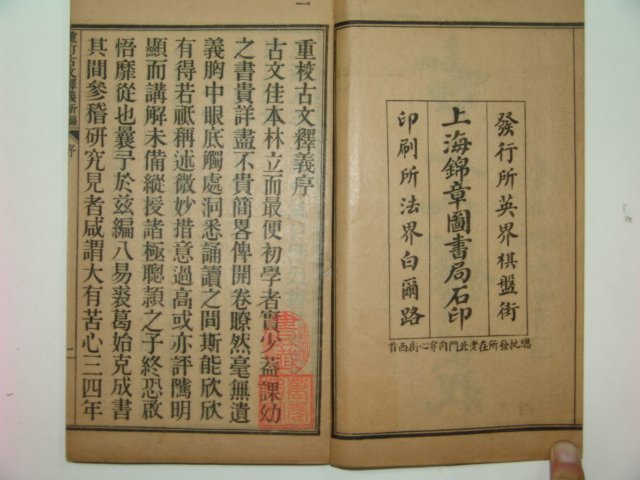 發行所英界棋盤街
上海錦章圖書局石印
印刷所法界白爾路
總批發所在老北門內穿心街西首
重校古文釋義序
古文佳本林立而最便初學者實少蓋課幼
之書貴詳盡不貴簡畧俾開卷瞭然毫無遺
義胸中眼底觸處洞悉誦讀之間斯能欣欣
有得若祇稱述微妙措意過高或亦評隲明
顯而講解未備縱授諸極聰穎之子終恐啟
悟靡從也曩予於茲編八易裘葛始克成書
其間參稽研究見者咸謂大有苦心三四年
重訂古文釋義新編
序
一